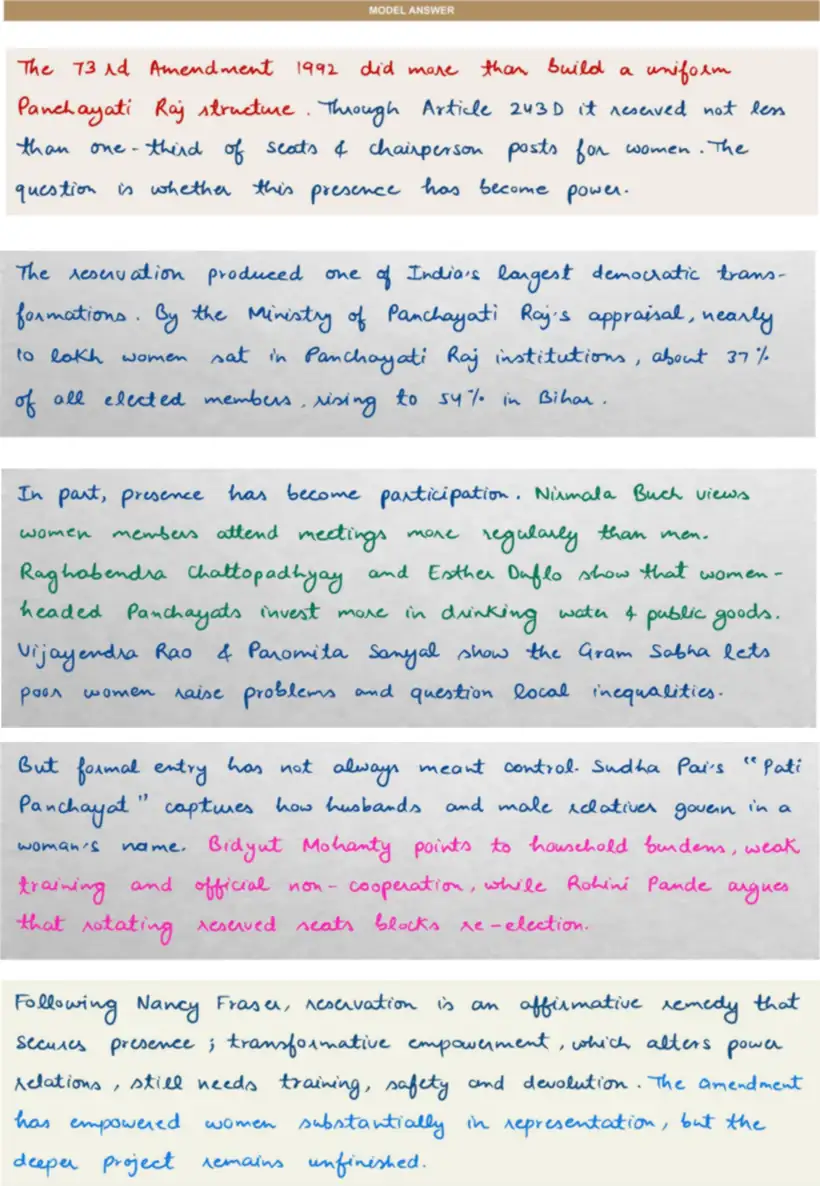 MODEL ANSWER
The 73rd Amendment 1992 did more than build a uniform
Panchayati Raj structure. Through Article 243D it reserved not less
than one-third of seats & chairperson posts for women. The
question is whether this presence has become power.
The reservation produced one of India's largest democratic trans-
formations. By the Ministry of Panchayati Raj's appraisal, nearly
10 lakh women sat in Panchayati Raj institutions, about 37%
of all elected members, rising to 54% in Bihar.
In part, presence has become participation. Nirmala Buch views
women members attend meetings more regularly than men.
Raghabendra Chattopadhyay and Esther Duflo show that women-
headed Panchayats invest more in drinking water & public goods.
Vijayendra Rao & Paromita Sanyal show the Gram Sabha lets
poor women raise problems and question local inequalities.
But formal entry has not always meant control. Sudha Pai's "Pati
Panchayat" captures how husbands and male relatives govern in a
woman's name. Bidyut Mohanty points to household burdens, weak
training and official non-cooperation, while Rohini Pande argues
that rotating reserved seats blocks re-election.
Following Nancy Fraser, reservation is an affirmative remedy that
secures presence; transformative empowerment, which alters power
relations, still needs training, safety and devolution. The amendment
has empowered women substantially in representation, but the
deeper project remains unfinished.